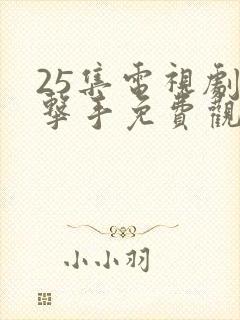 25集電視劇
擊手免費觀
小小羽